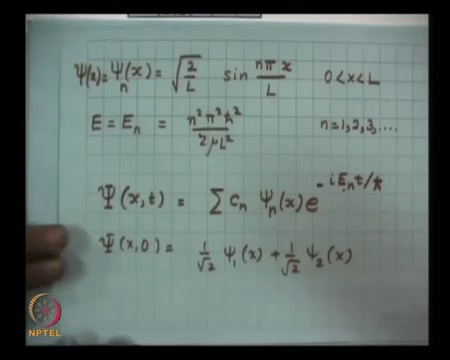 ψ(x) = ψ_n(x) = √(2/L) sin nπx/L 0 < x < L
E = E_n = n²π²ħ²/2μL² n = 1, 2, 3, ....
Ψ(x,t) = Σ c_n ψ_n(x) e^(-iE_n t/ħ)
Ψ(x,0) = 1/√2 ψ_1(x) + 1/√2 ψ_2(x)
NPTEL